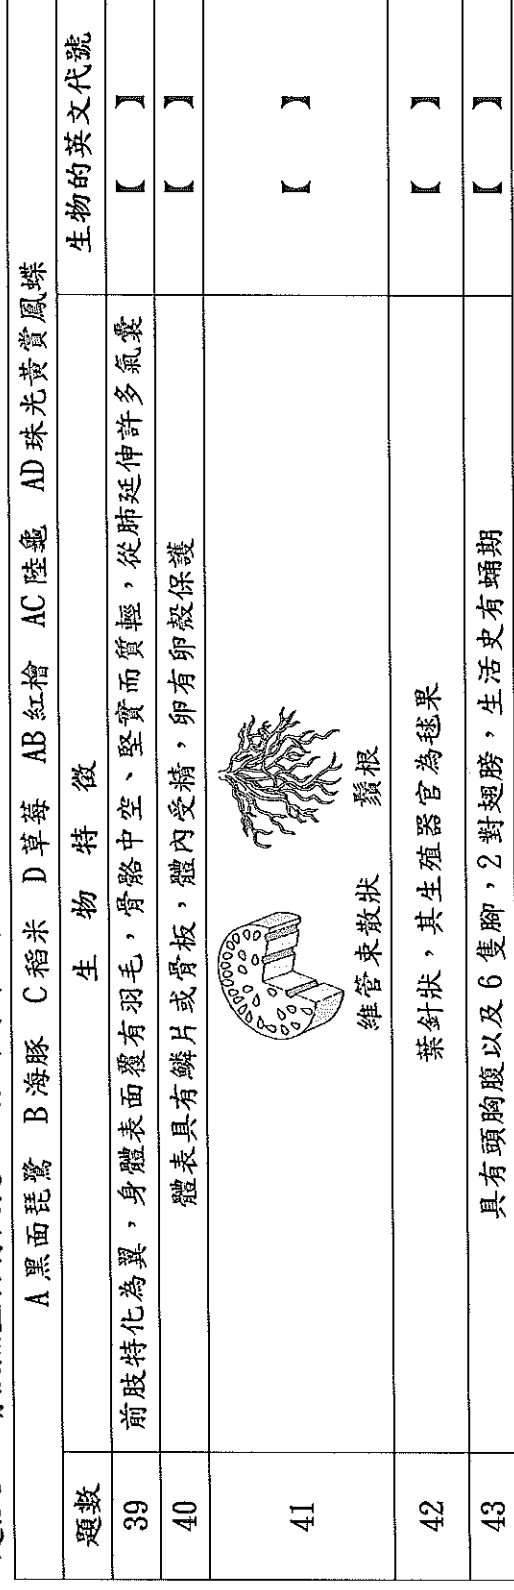 A 黑面琵鷺 B 海豚 C 稻米 D 草莓 AB 紅檜 AC 陸龜 AD 珠光黃裳鳳蝶
題數 生物特徵 生物的英文代號
39 前肢特化為翼，身體表面覆有羽毛，骨骼中空、堅實而質輕，從肺延伸許多氣囊 【 】
40 體表具有鱗片或骨板，體內受精，卵有卵殼保護 【 】
41 維管束散狀 鬚根 【 】
42 葉針狀，其生殖器官為毬果 【 】
43 具有頭胸腹以及 6 隻腳，2 對翅膀，生活史有蛹期 【 】